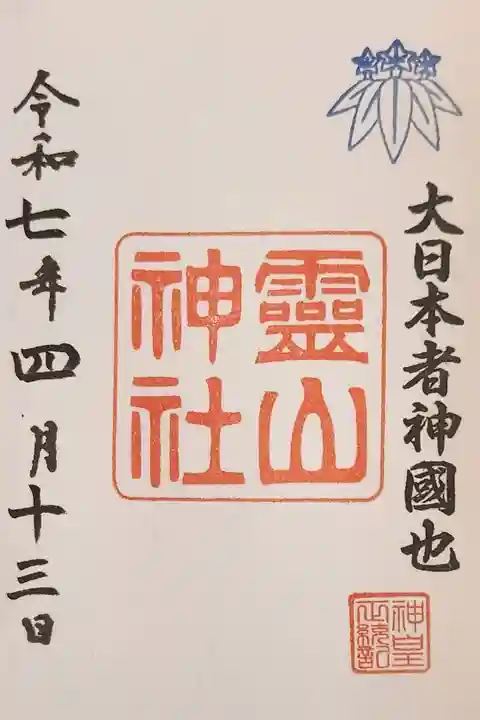 大日本者神國也
神皇
正統記
靈山
神社
令和七年四月十三日